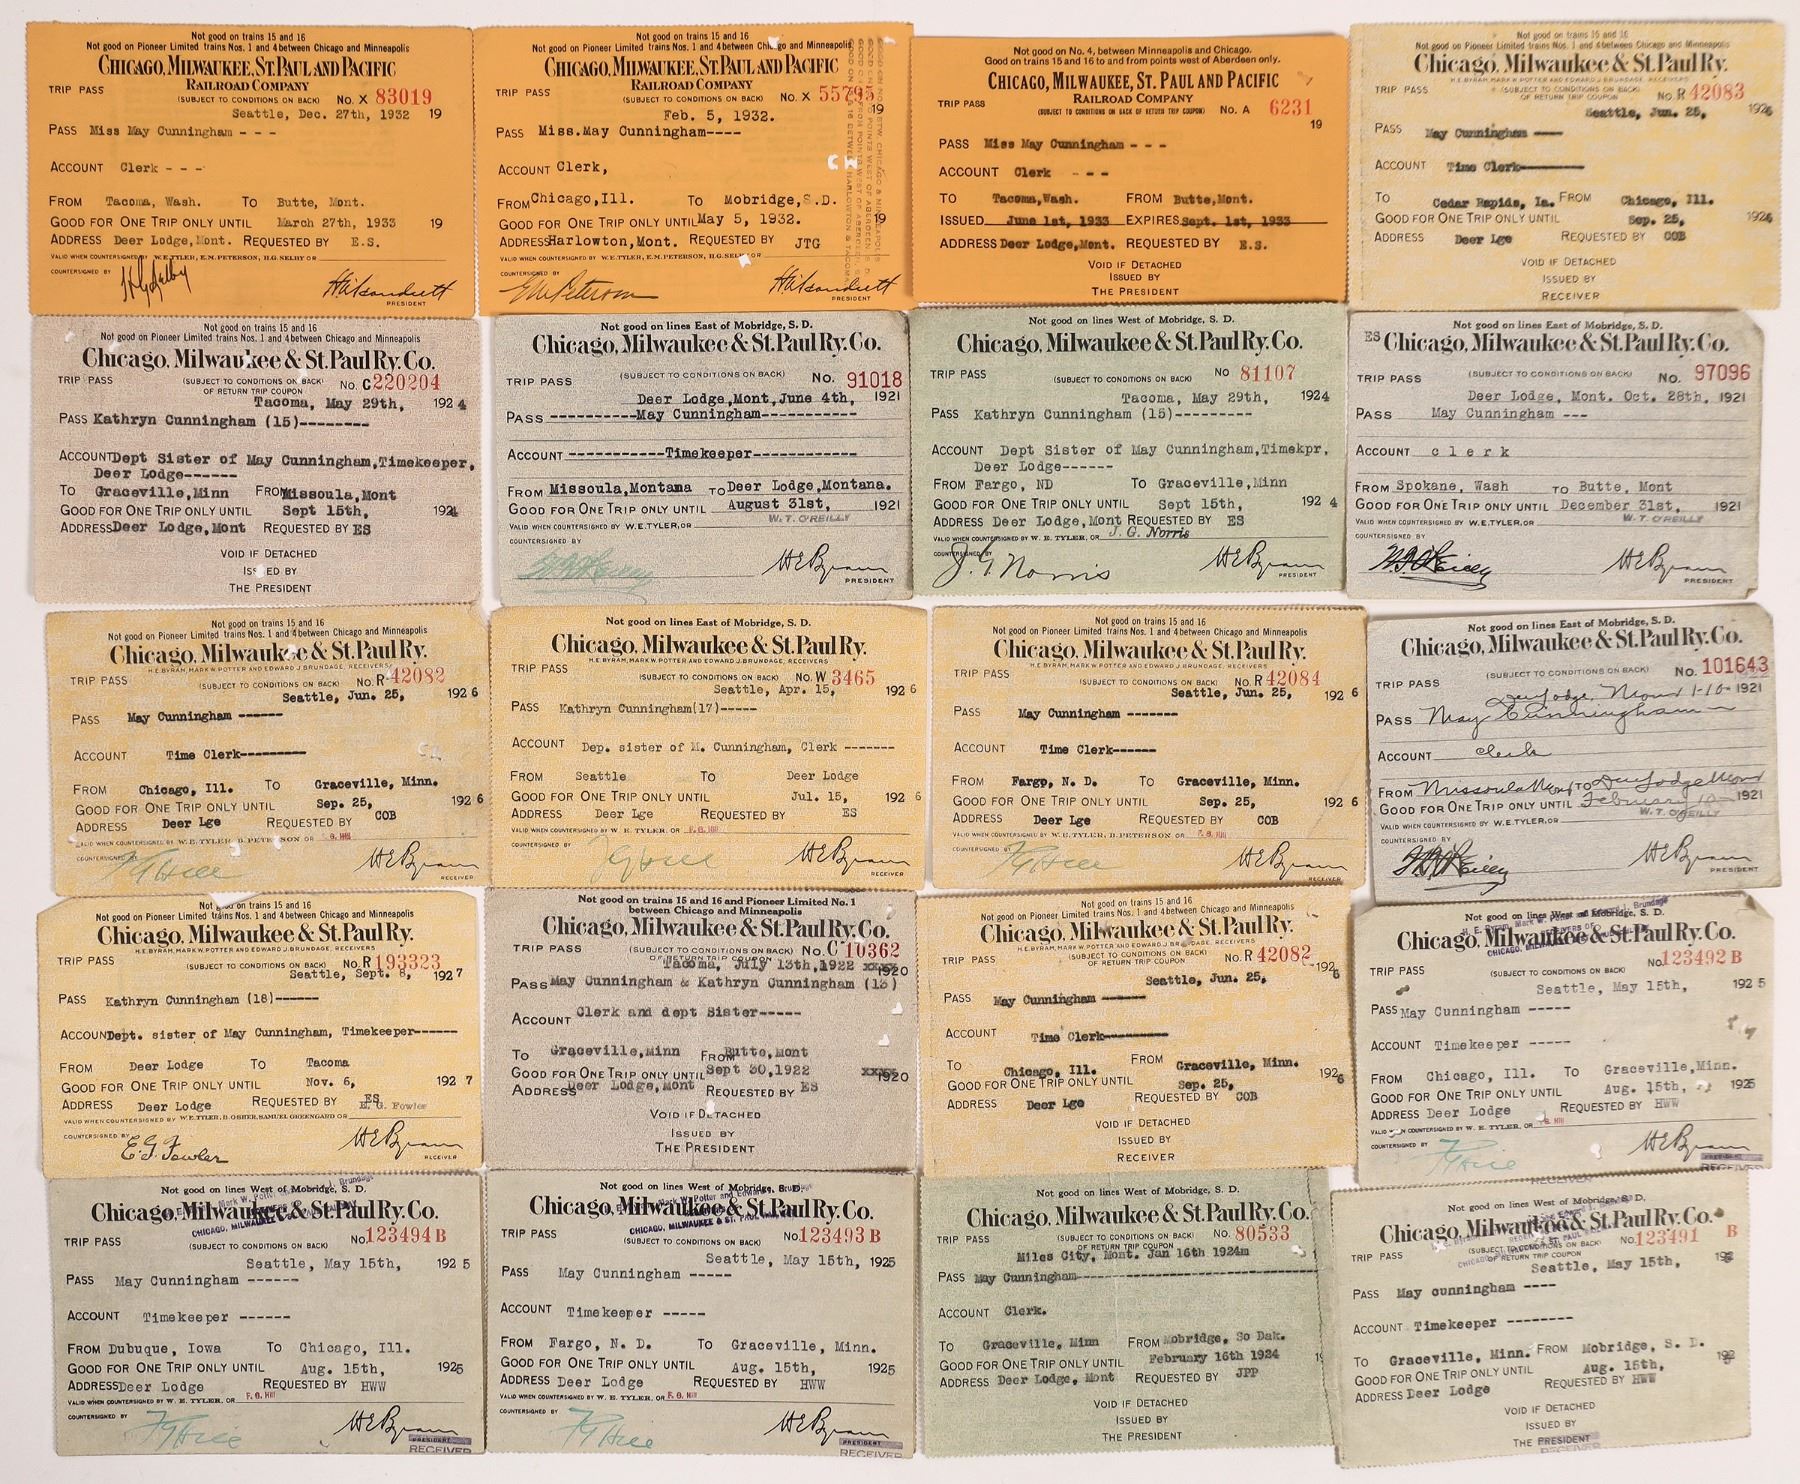 Not good on trains 15 and 16
Not good on Pioneer Limited trains Nos. 1 and 4 between Chicago and Minneapolis
CHICAGO, MILWAUKEE, ST. PAUL AND PACIFIC
RAILROAD COMPANY
TRIP PASS (SUBJECT TO CONDITIONS ON BACK) No. X 83019
Seattle, Dec. 27th, 1932 19
PASS Miss May Cunningham - - -
ACCOUNT Clerk - - -
FROM Tacoma, Wash. TO Butte, Mont.
GOOD FOR ONE TRIP ONLY UNTIL March 27th, 1933 19
ADDRESS Deer Lodge, Mont. REQUESTED BY E.S.
VALID WHEN COUNTERSIGNED BY W.E.TYLER, E.M. PETERSON, H.G. SELBY OR
COUNTERSIGNED BY
H G Selby
PRESIDENT
Not good on trains 15 and 16
Not good on Pioneer Limited trains Nos. 1 and 4 between Chicago and Minneapolis
CHICAGO, MILWAUKEE, ST. PAUL AND PACIFIC
RAILROAD COMPANY
TRIP PASS (SUBJECT TO CONDITIONS ON BACK) No. X 55795
Feb. 5, 1932. 19
PASS Miss. May Cunningham----
ACCOUNT Clerk,
FROM Chicago, Ill. TO Mobridge, S.D.
GOOD FOR ONE TRIP ONLY UNTIL May 5, 1932. 19
ADDRESS Harlowton, Mont. REQUESTED BY JTG
VALID WHEN COUNTERSIGNED BY W.E.TYLER, E.M. PETERSON, H.G. SELBY OR
COUNTERSIGNED BY
E M Peterson
PRESIDENT
Not good on No. 4, between Minneapolis and Chicago.
Good on trains 15 and 16 to and from points west of Aberdeen only.
CHICAGO, MILWAUKEE, ST. PAUL AND PACIFIC
RAILROAD COMPANY
TRIP PASS (SUBJECT TO CONDITIONS ON BACK OF RETURN TRIP COUPON) No. A 6231
19
PASS Miss May Cunningham - - -
ACCOUNT Clerk - - -
TO Tacoma, Wash. FROM Butte, Mont.
ISSUED June 1st, 1933 EXPIRES Sept. 1st, 1933
ADDRESS Deer Lodge, Mont. REQUESTED BY E.S.
VOID IF DETACHED
ISSUED BY
THE PRESIDENT
Not good on trains 15 and 16
Not good on Pioneer Limited trains Nos. 1 and 4 between Chicago and Minneapolis
Chicago, Milwaukee & St. Paul Ry.
H.E. BYRAM, MARK W. POTTER AND EDWARD J. BRUNDAGE, RECEIVERS
TRIP PASS (SUBJECT TO CONDITIONS ON BACK
OF RETURN TRIP COUPON No. R 42083
Seattle, Jun. 25, 1926
PASS May Cunningham ----
ACCOUNT Time Clerk---------
TO Cedar Rapids, Ia. FROM Chicago, Ill.
GOOD FOR ONE TRIP ONLY UNTIL Sep. 25, 1926
ADDRESS Deer Lge REQUESTED BY COB
VOID IF DETACHED
ISSUED BY
RECEIVER
Not good on trains 15 and 16
Not good on Pioneer Limited trains Nos. 1 and 4 between Chicago and Minneapolis
Chicago, Milwaukee & St. Paul Ry. Co.
TRIP PASS (SUBJECT TO CONDITIONS ON BACK
OF RETURN TRIP COUPON No. C 220204
Tacoma, May 29th, 1924
PASS Kathryn Cunningham (15)--------
ACCOUNT Dept Sister of May Cunningham, Timekeeper,
Deer Lodge------
TO Graceville, Minn FROM Missoula, Mont
GOOD FOR ONE TRIP ONLY UNTIL Sept 15th, 1924
ADDRESS Deer Lodge, Mont REQUESTED BY ES
VOID IF DETACHED
ISSUED BY
THE PRESIDENT
Not good on lines East of Mobridge, S. D.
Chicago, Milwaukee & St. Paul Ry. Co.
TRIP PASS (SUBJECT TO CONDITIONS ON BACK) No. 91018
Deer Lodge, Mont, June 4th, 1921
PASS -----------May Cunningham-----------
ACCOUNT -----------Timekeeper-----------
FROM Missoula, Montana TO Deer Lodge, Montana.
GOOD FOR ONE TRIP ONLY UNTIL August 31st, 1921
VALID WHEN COUNTERSIGNED BY W.E.TYLER, OR W. T. O'REILLY
COUNTERSIGNED BY
H E Byram
PRESIDENT
Not good on lines West of Mobridge, S. D.
Chicago, Milwaukee & St. Paul Ry. Co.
TRIP PASS (SUBJECT TO CONDITIONS ON BACK) No 81107
Tacoma, May 29th, 1924
PASS Kathryn Cunningham (15)---------
ACCOUNT Dept Sister of May Cunningham, Timekpr,
Deer Lodge------
FROM Fargo, ND TO Graceville, Minn
GOOD FOR ONE TRIP ONLY UNTIL Sept 15th, 1924
ADDRESS Deer Lodge, Mont REQUESTED BY ES
VALID WHEN COUNTERSIGNED BY W. E. TYLER, OR J. G. Norris
COUNTERSIGNED BY
J. G. Norris H E Byram
PRESIDENT
Not good on lines East of Mobridge, S. D.
ES Chicago, Milwaukee & St. Paul Ry. Co.
TRIP PASS (SUBJECT TO CONDITIONS ON BACK) No. 97096
Deer Lodge, Mont. Oct. 28th, 1921
PASS May Cunningham ---
ACCOUNT c l e r k
FROM Spokane, Wash TO Butte, Mont
GOOD FOR ONE TRIP ONLY UNTIL December 31st, 1921
VALID WHEN COUNTERSIGNED BY W.E.TYLER, OR W. T. O'REILLY
COUNTERSIGNED BY
H E Byram
PRESIDENT
Not good on trains 15 and 16
Not good on Pioneer Limited trains Nos. 1 and 4 between Chicago and Minneapolis
Chicago, Milwaukee & St. Paul Ry.
H.E. BYRAM, MARK W. POTTER AND EDWARD J. BRUNDAGE, RECEIVERS
TRIP PASS (SUBJECT TO CONDITIONS ON BACK) No. R 42082
Seattle, Jun. 25, 1926
PASS May Cunningham ------
ACCOUNT Time Clerk---------
FROM Chicago, Ill. TO Graceville, Minn.
GOOD FOR ONE TRIP ONLY UNTIL Sep. 25, 1926
ADDRESS Deer Lge REQUESTED BY COB
VALID WHEN COUNTERSIGNED BY W. E. TYLER, D. PETERSON OR F. G. Hill
COUNTERSIGNED BY
F G Hill H E Byram
RECEIVER
Not good on lines East of Mobridge, S. D.
Chicago, Milwaukee & St. Paul Ry.
H.E. BYRAM, MARK W. POTTER AND EDWARD J. BRUNDAGE, RECEIVERS
TRIP PASS (SUBJECT TO CONDITIONS ON BACK) No. W 3465
Seattle, Apr. 15, 1926
PASS Kathryn Cunningham(17)-----
ACCOUNT Dep. sister of M. Cunningham, Clerk -------
FROM Seattle TO Deer Lodge
GOOD FOR ONE TRIP ONLY UNTIL Jul. 15, 1926
ADDRESS Deer Lge REQUESTED BY ES
VALID WHEN COUNTERSIGNED BY W. E. TYLER, OR F. G. Hill
COUNTERSIGNED BY
F G Hill H E Byram
RECEIVER
Not good on trains 15 and 16
Not good on Pioneer Limited trains Nos. 1 and 4 between Chicago and Minneapolis
Chicago, Milwaukee & St. Paul Ry.
H.E. BYRAM, MARK W. POTTER AND EDWARD J. BRUNDAGE, RECEIVERS
TRIP PASS (SUBJECT TO CONDITIONS ON BACK) No. R 42084
Seattle, Jun. 25, 1926
PASS May Cunningham -------
ACCOUNT Time Clerk------
FROM Fargo, N. D. TO Graceville, Minn.
GOOD FOR ONE TRIP ONLY UNTIL Sep. 25, 1926
ADDRESS Deer Lge REQUESTED BY COB
VALID WHEN COUNTERSIGNED BY W. E. TYLER, D. PETERSON OR F. G. Hill
COUNTERSIGNED BY
F G Hill H E Byram
RECEIVER
Not good on lines East of Mobridge, S. D.
Chicago, Milwaukee & St. Paul Ry. Co.
TRIP PASS (SUBJECT TO CONDITIONS ON BACK) No. 101643
Deer Lodge, Mont 1-10- 1921
PASS May Cunningham
ACCOUNT clerk
FROM Missoula Mont TO Deer Lodge Mont
GOOD FOR ONE TRIP ONLY UNTIL February 10 1921
VALID WHEN COUNTERSIGNED BY W.E.TYLER, OR W. T. O'REILLY
COUNTERSIGNED BY
H E Byram
PRESIDENT
Not good on trains 15 and 16
Not good on Pioneer Limited trains Nos. 1 and 4 between Chicago and Minneapolis
Chicago, Milwaukee & St. Paul Ry.
H.E. BYRAM, MARK W. POTTER AND EDWARD J. BRUNDAGE, RECEIVERS
TRIP PASS (SUBJECT TO CONDITIONS ON BACK) No. R 193323
Seattle, Sept. 8, 1927
PASS Kathryn Cunningham (18)------
ACCOUNT Dept. sister of May Cunningham, Timekeeper------
FROM Deer Lodge TO Tacoma
GOOD FOR ONE TRIP ONLY UNTIL Nov. 6, 1927
ADDRESS Deer Lodge REQUESTED BY ES
VALID WHEN COUNTERSIGNED BY W.E.TYLER, D. OSHER, SAMUEL GREENGARD OR E. G. Fowler
COUNTERSIGNED BY
E. G. Fowler H E Byram
RECEIVER
Not good on trains 15 and 16 and Pioneer Limited No. 1
between Chicago and Minneapolis
Chicago, Milwaukee & St. Paul Ry. Co.
TRIP PASS (SUBJECT TO CONDITIONS ON BACK) No. C 10362
OF RETURN TRIP COUPON
Tacoma, July 13th, 1922 xxxx 1920
PASS May Cunningham & Kathryn Cunningham (13)
ACCOUNT Clerk and dept Sister-----
TO Graceville, Minn FROM Butte, Mont
GOOD FOR ONE TRIP ONLY UNTIL Sept 30, 1922 xxxx 1920
ADDRESS Deer Lodge, Mont REQUESTED BY ES
VOID IF DETACHED
ISSUED BY
THE PRESIDENT
Not good on trains 15 and 16
Not good on Pioneer Limited trains Nos. 1 and 4 between Chicago and Minneapolis
Chicago, Milwaukee & St. Paul Ry.
H.E. BYRAM, MARK W. POTTER AND EDWARD J. BRUNDAGE, RECEIVERS
TRIP PASS (SUBJECT TO CONDITIONS ON BACK
OF RETURN TRIP COUPON No. R 42082
Seattle, Jun. 25, 1926
PASS May Cunningham ------
ACCOUNT Time Clerk---------
TO Chicago, Ill. FROM Graceville, Minn.
GOOD FOR ONE TRIP ONLY UNTIL Sep. 25, 1926
ADDRESS Deer Lge REQUESTED BY COB
VOID IF DETACHED
ISSUED BY
RECEIVER
Not good on lines West of Mobridge, S. D.
Chicago, Milwaukee & St. Paul Ry. Co.
TRIP PASS (SUBJECT TO CONDITIONS ON BACK) No. 123492 B
Seattle, May 15th, 1925
PASS May Cunningham -----
ACCOUNT Timekeeper -----
FROM Chicago, Ill. TO Graceville, Minn.
GOOD FOR ONE TRIP ONLY UNTIL Aug. 15th, 1925
ADDRESS Deer Lodge REQUESTED BY HWW
VALID WHEN COUNTERSIGNED BY W. E. TYLER, OR F. G. Hill
COUNTERSIGNED BY
F G Hill H E Byram
PRESIDENT
RECEIVER
Not good on lines West of Mobridge, S. D.
Chicago, Milwaukee & St. Paul Ry. Co.
TRIP PASS (SUBJECT TO CONDITIONS ON BACK) No. 123494 B
Seattle, May 15th, 1925
PASS May Cunningham ------
ACCOUNT Timekeeper ------
FROM Dubuque, Iowa TO Chicago, Ill.
GOOD FOR ONE TRIP ONLY UNTIL Aug. 15th, 1925
ADDRESS Deer Lodge REQUESTED BY HWW
VALID WHEN COUNTERSIGNED BY W. E. TYLER, OR F. G. Hill
COUNTERSIGNED BY
F G Hill H E Byram
PRESIDENT
RECEIVER
Not good on lines West of Mobridge, S. D.
Chicago, Milwaukee & St. Paul Ry. Co.
TRIP PASS (SUBJECT TO CONDITIONS ON BACK) No. 123493 B
Seattle, May 15th, 1925
PASS May Cunningham -----
ACCOUNT Timekeeper -----
FROM Fargo, N. D. TO Graceville, Minn.
GOOD FOR ONE TRIP ONLY UNTIL Aug. 15th, 1925
ADDRESS Deer Lodge REQUESTED BY HWW
VALID WHEN COUNTERSIGNED BY W. E. TYLER, OR F. G. Hill
COUNTERSIGNED BY
F G Hill H E Byram
PRESIDENT
RECEIVER
Not good on lines West of Mobridge, S. D.
Chicago, Milwaukee & St. Paul Ry. Co.
TRIP PASS (SUBJECT TO CONDITIONS ON BACK
OF RETURN TRIP COUPON No. 80533
Miles City, Mont. Jan 16th 1924m
PASS May Cunningham
ACCOUNT Clerk.
TO Graceville, Minn FROM Mobridge, So Dak.
GOOD FOR ONE TRIP ONLY UNTIL February 16th 1924
ADDRESS Deer Lodge, Mont REQUESTED BY JPP
VOID IF DETACHED
ISSUED BY
THE PRESIDENT
Not good on lines West of Mobridge, S. D.
Chicago, Milwaukee & St. Paul Ry. Co.
TRIP PASS (SUBJECT TO CONDITIONS ON BACK
OF RETURN TRIP COUPON No. 123491 B
Seattle, May 15th, 192
PASS May cunningham ----
ACCOUNT Timekeeper --------
TO Graceville, Minn. FROM Mobridge, S. D.
GOOD FOR ONE TRIP ONLY UNTIL Aug. 15th, 192
ADDRESS Deer Lodge REQUESTED BY HWW
VOID IF DETACHED
ISSUED BY
THE PRESIDENT
RECEIVER